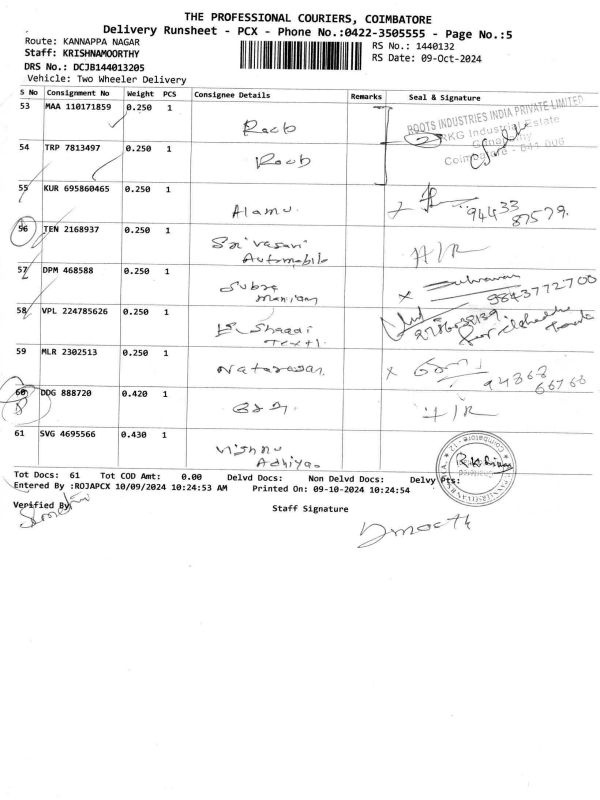 THE PROFESSIONAL COURIERS, COIMBATORE
Delivery Runsheet - PCX - Phone No.:0422-3505555 - Page No.:5
Route: KANNAPPA NAGAR
Staff: KRISHNAMOORTHY
DRS No.: DCJB144013205
Vehicle: Two Wheeler Delivery
RS No.: 1440132
RS Date: 09-Oct-2024
S No Consignment No Weight PCS Consignee Details Remarks Seal & Signature
53 MAA 110171859 0.250 1
ROOTS INDUSTRIES INDIA PRIVATE LIMITED
RKG Industrial Estate
Ganapathy
Coimbatore - 641 006
54 TRP 7813497 0.250 1
55 KUR 695860465 0.250 1
Alamu 94433
87579
56 TEN 2168937 0.250 1
Sri Vasavi
Automobile
57 DPM 468588 0.250 1
Subra
manian 9843772700
58 VPL 224785626 0.250 1
59 MLR 2302513 0.250 1
Natarasan 94868
66768
60 DDG 888720 0.420 1
61 SVG 4695566 0.430 1
Vishnu
Tot Docs: 61 Tot COD Amt: 0.00 Delvd Docs: Non Delvd Docs: Delvy Pts:
Entered By :ROJAPCX 10/09/2024 10:24:53 AM Printed On: 09-10-2024 10:24:54
Verified By
Staff Signature